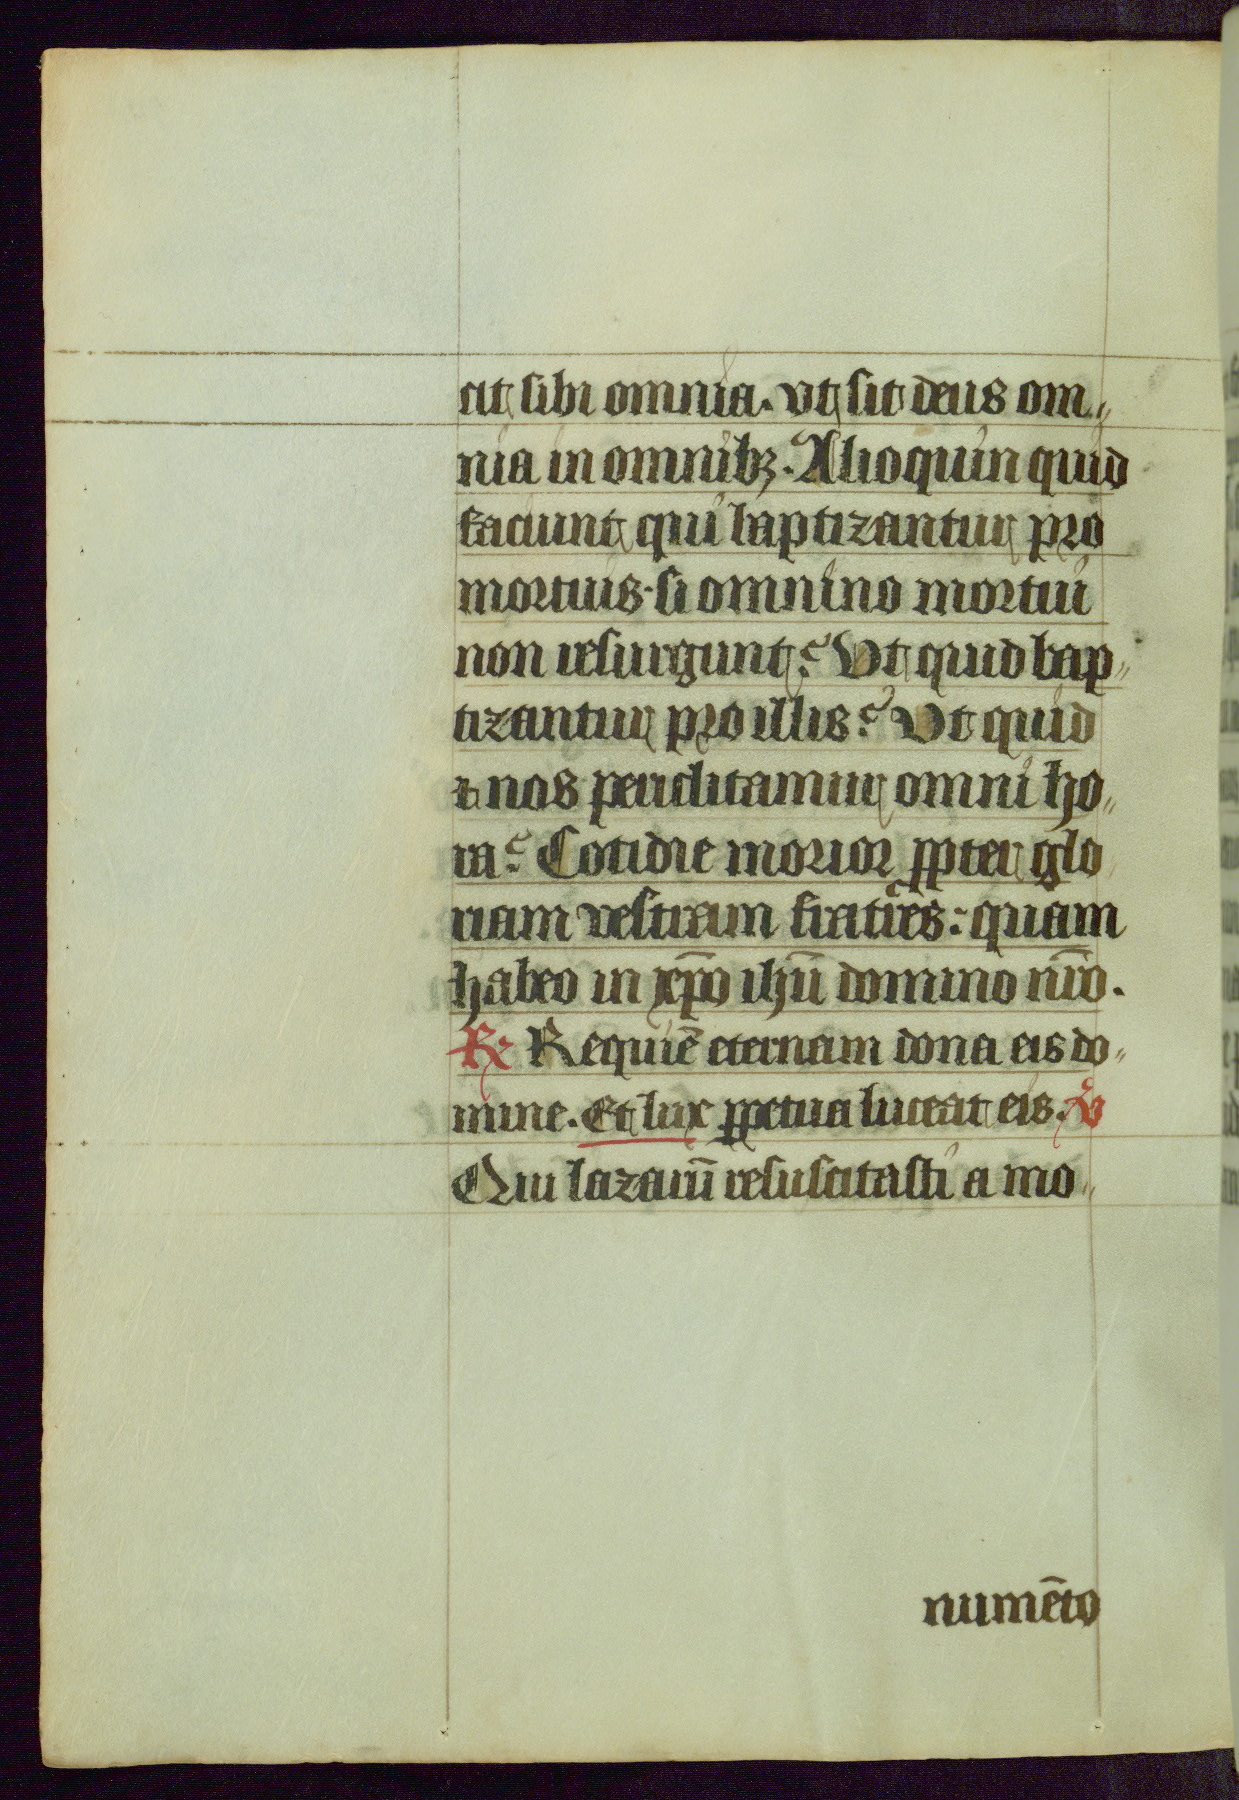 cit sibi omnia. vt sit deus om⸗
nia in omnibꝫ. Alioquin quid
faciunt qui baptizantur pro
mortuis. si omnino mortui
non resurgunt? Vt quid bap⸗
tizantur pro illis? Vt quid
⁊ nos periclitamur omni ho⸗
ra? Cotidie morior ꝓpter glo
riam vestram fratres: quam
habeo in xp̄o ihū domino nr̄o.
℟ Requiē eternam dona eis do⸗
mine. Et lux ꝑpetua luceat eis. ℣
Qui lazarū resuscitasti a mo⸗
numēto